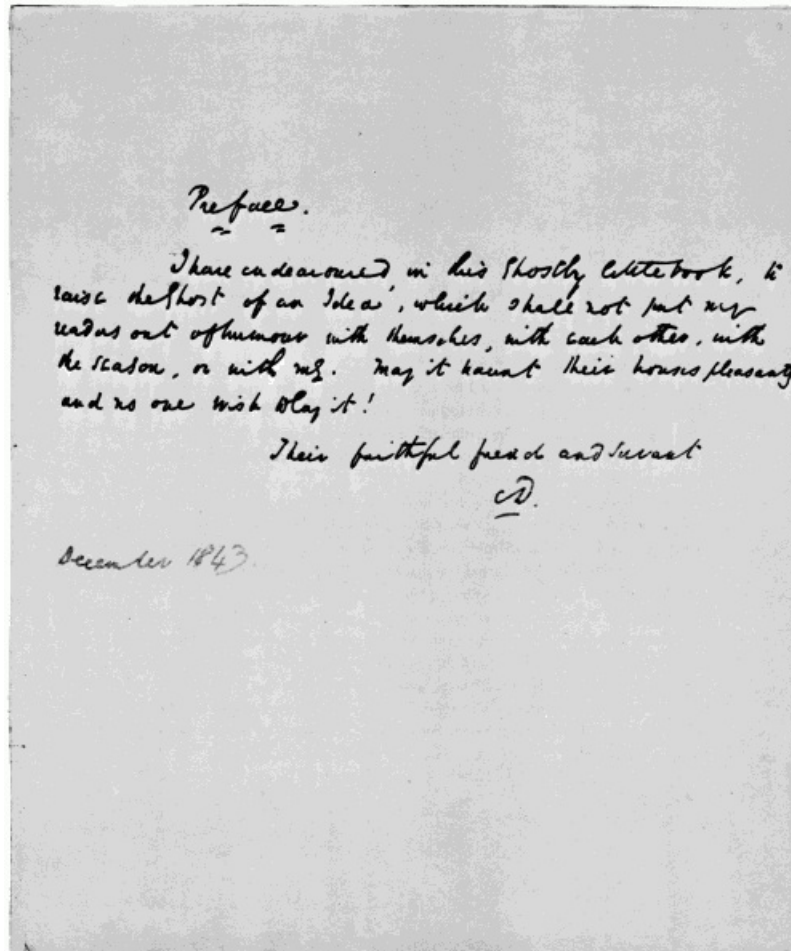 Preface.
I have endeavoured in this Ghostly little book, to
raise the Ghost of an Idea, which shall not put my
readers out of humour with themselves, with each other, with
the season, or with me. May it haunt their houses pleasantly
and no one wish to lay it!
Their faithful friend and servant
CD.
December 1843.